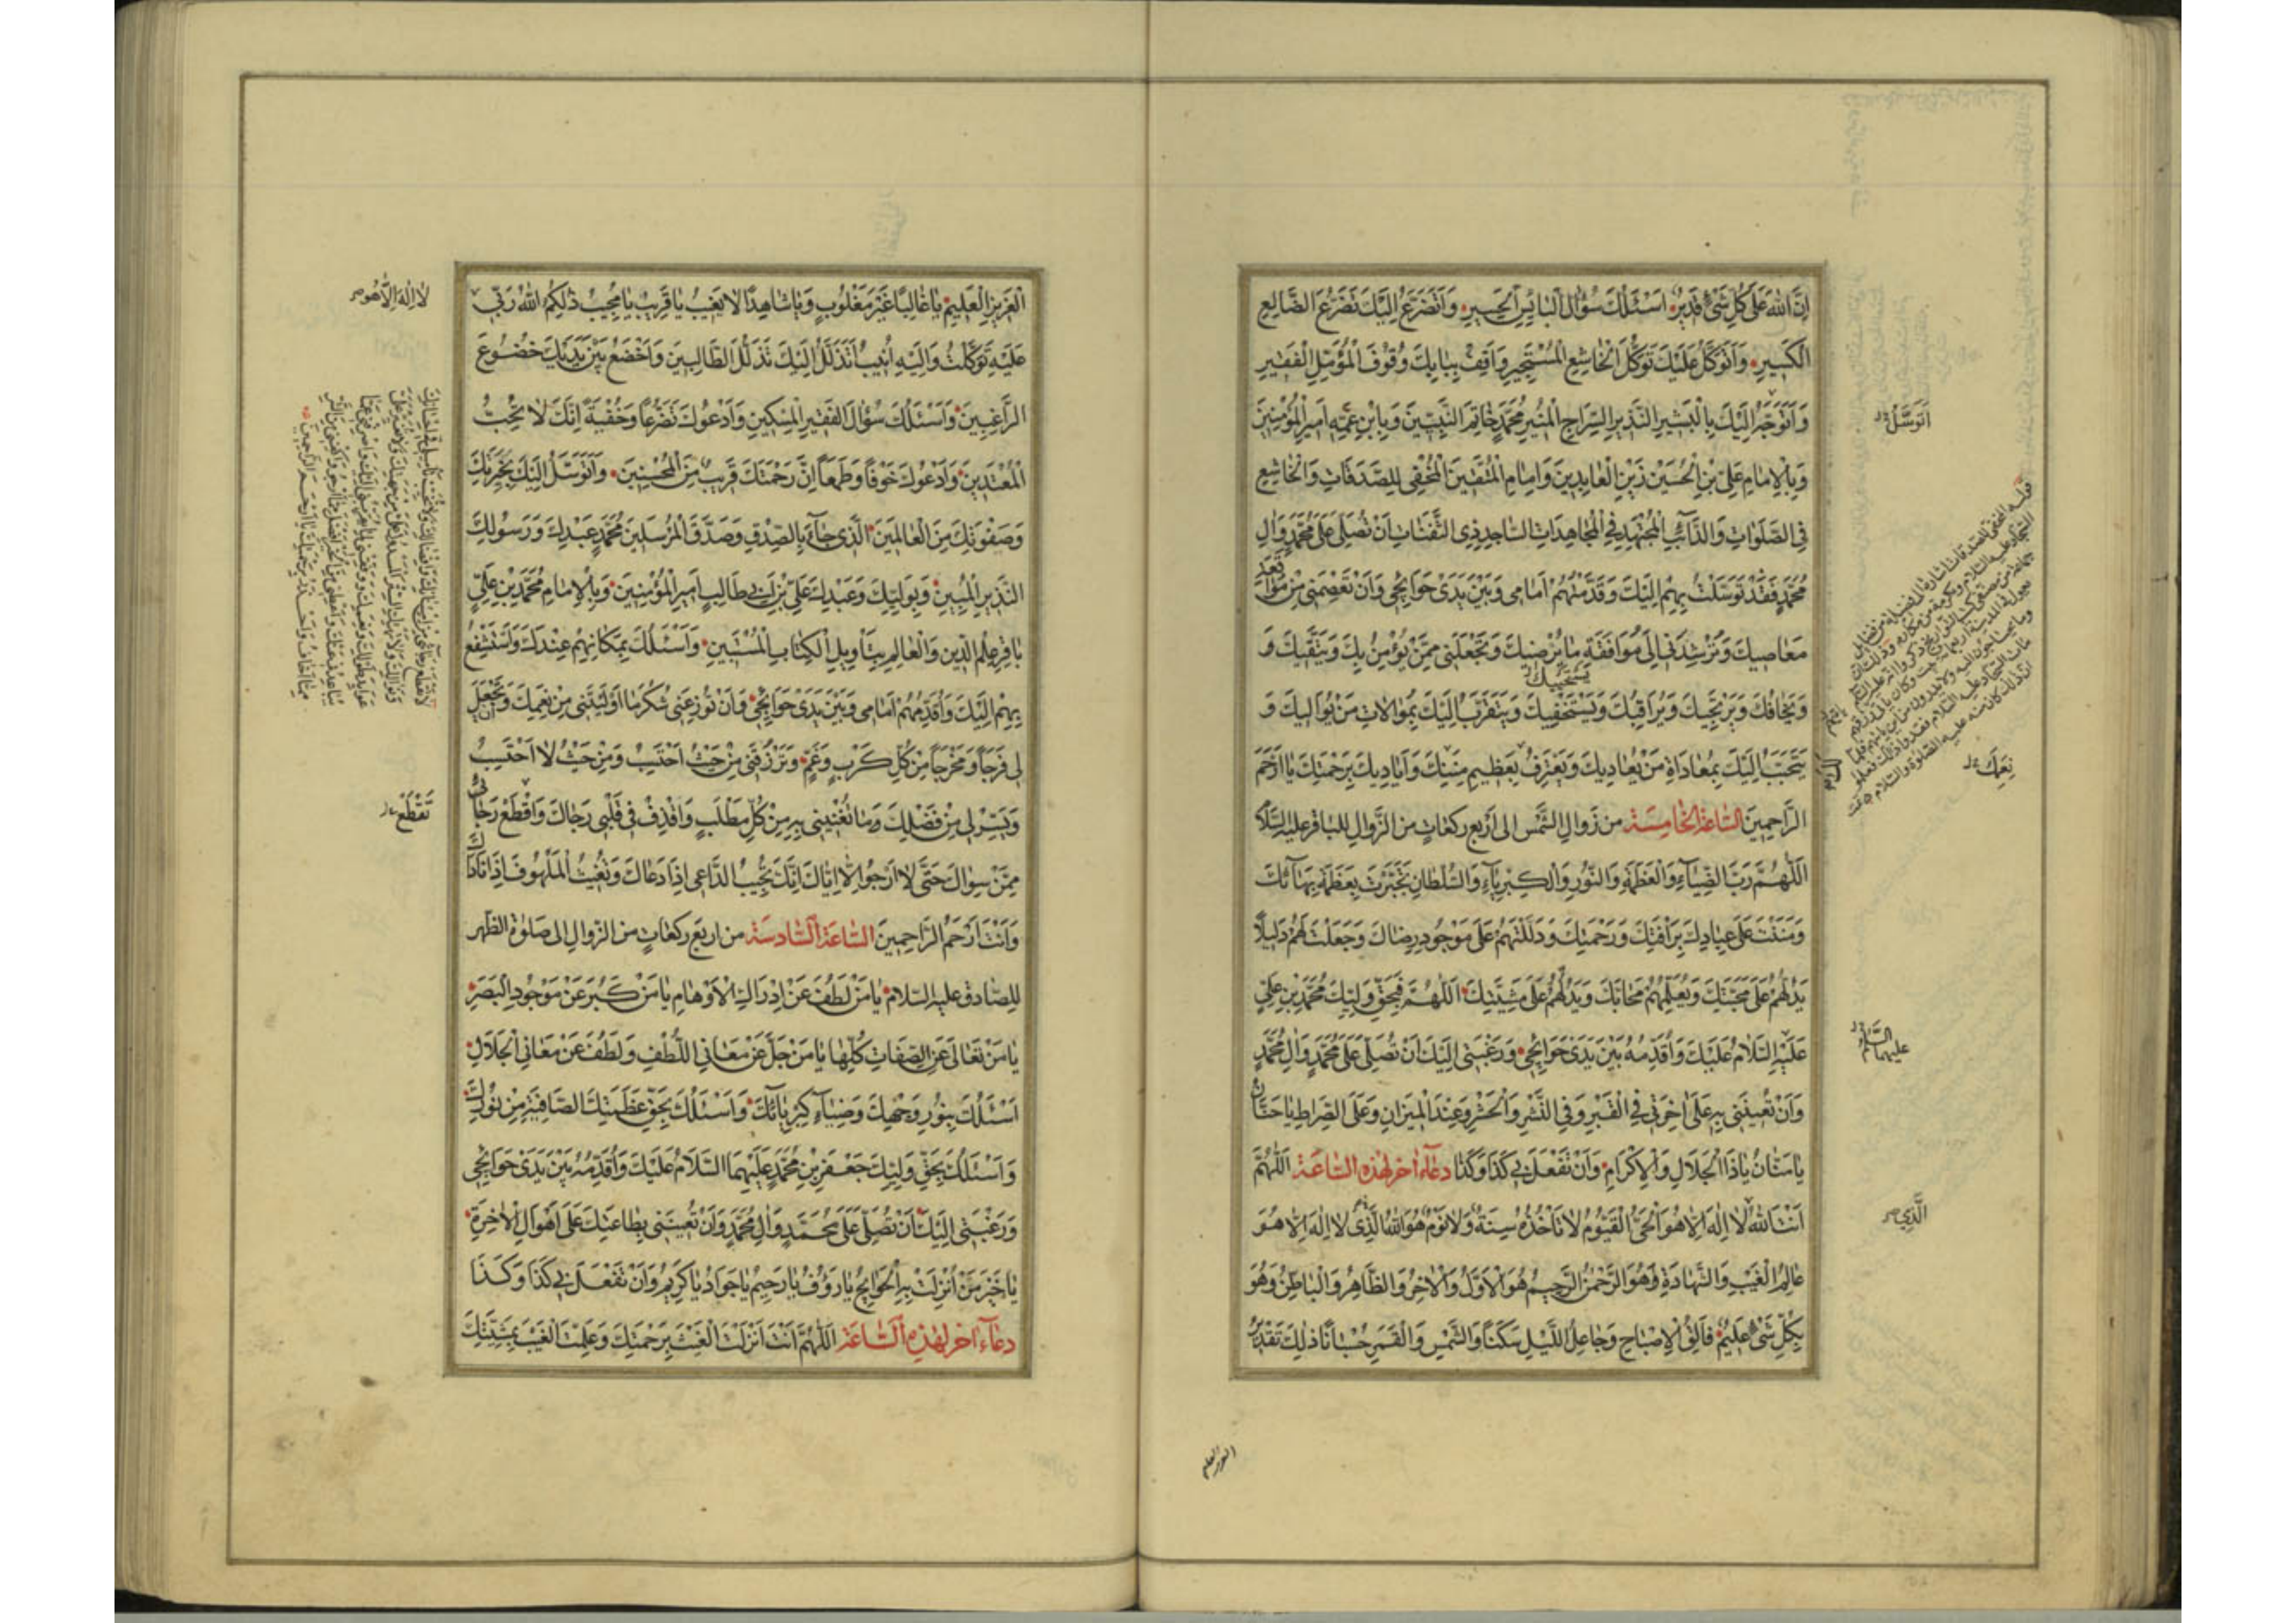 اِنَّ اللهَ عَلٰی كُلِّ شَیْءٍ قَدِیْرٌ اَسْئَلُكَ سُؤٰالَ الْبٰائِسِ الْحَسِیرِ وَاَتَضَرَّعُ اِلَیْكَ تَضَرُّعَ الضّٰالِعِ
الْكَسِیرِ وَاَتَوَكَّلُ عَلَیْكَ تَوَكُّلَ الْخٰاشِعِ الْمُسْتَجِیرِ وَاَقِفُ بِبٰابِكَ وُقُوفَ الْمُؤَمِّلِ الْفَقِیْرِ
وَاَتَوَجَّهُ اِلَیْكَ بِالْبَشِیرِ النَّذِیرِ السِّرٰاجِ الْمُنِیرِ مُحَمَّدٍ خٰاتَمِ النَّبِیّٖنَ وَبِابْنِ عَمِّهِ اَمِیرِالْمُؤْمِنِینَ
اَتَوَسَّلُ
وَبِالْاِمٰامِ عَلِیِّ بْنِ الْحُسَیْنِ زَیْنِ الْعٰابِدِینَ وَاِمٰامِ الْمُتَّقِینَ الْمُخْفِی لِلصَّدَقٰاتِ وَالْخٰاشِعِ
فِی الصَّلَوٰاتِ وَالدّٰائِبِ الْمُجْتَهِدِ فِی الْمُجٰاهِدٰاتِ السّٰاجِدِ ذِی الثَّفَنٰاتِ اَنْ تُصَلِّیَ عَلٰی مُحَمَّدٍ وَاٰلِ
مُحَمَّدٍ فَقَدْ تَوَسَّلْتُ بِهِمْ اِلَیْكَ وَقَدَّمْتُهُمْ اَمٰامِی وَبَیْنَ یَدَیْ حَوٰائِجِی وَاَنْ تَعْصِمَنِی مِنْ مُوٰاقَعَةِ
مَعٰاصِیكَ وَتُرْشِدَنِی اِلٰی مُوٰافَقَةِ مٰا یُرْضِیكَ وَتَجْعَلَنِی مِمَّنْ یُؤْمِنُ بِكَ وَیَتَّقِیكَ وَ
وَیَخٰافُكَ وَیَرْتَجِیكَ وَیُرٰاقِبُكَ وَیَسْتَخْفِیكَ وَیَتَقَرَّبُ اِلَیْكَ بِمُوٰالٰاتِ مَنْ یُوٰالِیكَ وَ
یَسْتَحْیِیكَ
یَتَحَبَّبُ اِلَیْكَ بِمُعٰادٰاةِ مَنْ یُعٰادِیكَ وَیَعْتَرِفُ بِعَظِیمِ مِنَنِكَ وَاَیٰادِیكَ بِرَحْمَتِكَ یٰا اَرْحَمَ
نِعَمِكَ
الرّٰاحِمِینَ السّٰاعَةُ الْخٰامِسَةُ من زَوٰالِ الشَّمس الی اَربع ركعٰاتٍ من الزّوٰال للبٰاقر علیه السّلام
اَللّٰهُمَّ رَبَّ الضِّیٰآءِ وَالْعَظَمَةِ وَالنُّورِ وَالْكِبْرِیٰآءِ وَالسُّلْطٰانِ تَجَبَّرْتَ بِعَظَمَةِ بَهٰآئِكَ
وَمَنَنْتَ عَلٰی عِبٰادِكَ بِرَاْفَتِكَ وَرَحْمَتِكَ وَدَلَلْتَهُمْ عَلٰی مَوْجُودِ رِضٰاكَ وَجَعَلْتَ لَهُمْ دَلِیلًا
یَدُلُّهُمْ عَلٰی مَحَبَّتِكَ وَیُعَلِّمُهُمْ مَحٰابَّكَ وَیَدُلُّهُمْ عَلٰی مَشِیَّتِكَ اَللّٰهُمَّ فَبِحَقِّ وَلِیِّكَ مُحَمَّدِ بْنِ عَلِیٍّ
عَلَیْهِ السَّلٰامُ عَلَیْكَ وَاُقَدِّمُهُ بَیْنَ یَدَیْ حَوٰائِجِی وَرَغْبَتِی اِلَیْكَ اَنْ تُصَلِّیَ عَلٰی مُحَمَّدٍ وَاٰلِ مُحَمَّدٍ
علیهما السَّلٰام
وَاَنْ تُعِینَنِی بِهِ عَلٰی اٰخِرَتِی فِی الْقَبْرِ وَفِی النَّشْرِ وَالْحَشْرِ وَعِنْدَ الْمِیزٰانِ وَعَلَی الصِّرٰاطِ یٰا حَنّٰانُ
یٰا مَنّٰانُ یٰا ذَا الْجَلٰالِ وَالْاِكْرٰامِ وَاَنْ تَفْعَلَ بِی كَذٰا وَكَذٰا دعٰآء اٰخر لهٰذه السّٰاعَة اَللّٰهُمَّ
اَنْتَ اللهُ لٰا اِلٰهَ اِلّٰا هُوَ الْحَیُّ الْقَیُّومُ لٰا تَاْخُذُهُ سِنَةٌ وَلٰا نَوْمٌ هُوَ اللهُ الَّذِی لٰا اِلٰهَ اِلّٰا هُوَ
الَّذِی
عٰالِمُ الْغَیْبِ وَالشَّهٰادَةِ وَهُوَ الرَّحْمٰنُ الرَّحِیمُ هُوَ الْاَوَّلُ وَالْاٰخِرُ وَالظّٰاهِرُ وَالْبٰاطِنُ وَهُوَ
بِكُلِّ شَیْءٍ عَلِیمٌ فٰالِقُ الْاِصْبٰاحِ وَجٰاعِلُ اللَّیْلِ سَكَنًا وَالشَّمْسِ وَالْقَمَرِ حُسْبٰانًا ذٰلِكَ تَقْدِیرُ
العزیز العلیم
الْعَزِیزِ الْعَلِیمِ یٰا غٰالِبًا غَیْرَ مَغْلُوبٍ وَیٰا شٰاهِدًا لٰا یَغِیبُ یٰا قَرِیبُ یٰا مُجِیبُ ذٰلِكُمُ اللهُ رَبِّی
لٰا اِلٰهَ اِلَّا هُوَ
عَلَیْهِ تَوَكَّلْتُ وَاِلَیْهِ اُنِیبُ اَتَذَلَّلُ اِلَیْكَ تَذَلُّلَ الطّٰالِبِینَ وَاَخْضَعُ بَیْنَ یَدَیْكَ خُضُوعَ
الرّٰاغِبِینَ وَاَسْئَلُكَ سُؤٰالَ الْفَقِیرِ الْمِسْكِینِ وَاَدْعُوكَ تَضَرُّعًا وَخُفْیَةً اِنَّكَ لٰا تُحِبُّ
الْمُعْتَدِینَ وَاَدْعُوكَ خَوْفًا وَطَمَعًا اِنَّ رَحْمَتَكَ قَرِیبٌ مِنَ الْمُحْسِنِینَ وَاَتَوَسَّلُ اِلَیْكَ بِخِیَرَتِكَ
وَصَفْوَتِكَ مِنَ الْعٰالَمِینَ الَّذِی جٰآءَ بِالصِّدْقِ وَصَدَّقَ الْمُرْسَلِینَ مُحَمَّدٍ عَبْدِكَ وَرَسُولِكَ
النَّذِیرِ الْمُبِینِ وَبِوَلِیِّكَ وَعَبْدِكَ عَلِیِّ بْنِ اَبِی طٰالِبٍ اَمِیرِ الْمُؤْمِنِینَ وَبِالْاِمٰامِ مُحَمَّدِ بْنِ عَلِیٍّ
بٰاقِرِ عِلْمِ الدِّینِ وَالْعٰالِمِ بِتَاْوِیلِ الْكِتٰابِ الْمُسْتَبِینِ وَاَسْئَلُكَ بِمَكٰانِهِمْ عِنْدَكَ وَاَسْتَشْفِعُ
بِهِمْ اِلَیْكَ وَاُقَدِّمُهُمْ اَمٰامِی وَبَیْنَ یَدَیْ حَوٰائِجِی وَاَنْ تُوزِعَنِی شُكْرَ مٰا اَوْلَیْتَنِی مِنْ نِعَمِكَ وَتَجْعَلَ
لِی فَرَجًا وَمَخْرَجًا مِنْ كُلِّ كَرْبٍ وَغَمٍّ وَتَرْزُقَنِی مِنْ حَیْثُ اَحْتَسِبُ وَمِنْ حَیْثُ لٰا اَحْتَسِبُ
وَیَسِّرْ لِی مِنْ فَضْلِكَ وَمٰا تُغْنِینِی بِهِ مِنْ كُلِّ مَطْلَبٍ وَاقْذِفْ فِی قَلْبِی رَجٰاكَ وَاقْطَعْ رَجٰائِی
تَقْطَعَ
مِمَّنْ سِوٰاكَ حَتّٰی لٰا اَرْجُوَ اِلّٰا اِیّٰاكَ اِنَّكَ تُجِیبُ الدّٰاعِیَ اِذٰا دَعٰاكَ وَتُغِیثُ الْمَلْهُوفَ اِذٰا نٰادٰاكَ
وَاَنْتَ اَرْحَمُ الرّٰاحِمِینَ السّٰاعَةُ السّٰادِسَةُ من اربع ركعٰاتٍ من الزّوٰال الی صَلٰوة الظّهر
للصّٰادق علیه السّلٰام یٰا مَنْ لَطُفَ عَنْ اِدْرٰاكِ الْاَوْهٰامِ یٰا مَنْ كَبُرَ عَنْ مَوْجُودِ الْبَصَرِ
یٰا مَنْ تَعٰالٰی عَنِ الصِّفٰاتِ كُلِّهٰا یٰا مَنْ جَلَّ عَنْ مَعٰانِی اللُّطْفِ وَلَطُفَ عَنْ مَعٰانِی الْجَلٰالِ
اَسْئَلُكَ بِنُورِ وَجْهِكَ وَضِیٰآءِ كِبْرِیٰآئِكَ وَاَسْئَلُكَ بِحَقِّ عَظَمَتِكَ الصّٰافِیَةِ مِنْ نُورِكَ
وَاَسْئَلُكَ بِحَقِّ وَلِیِّكَ جَعْفَرِ بْنِ مُحَمَّدٍ عَلَیْهِمَا السَّلٰامُ عَلَیْكَ وَاُقَدِّمُهُ بَیْنَ یَدَیْ حَوٰائِجِی
وَرَغْبَتِی اِلَیْكَ اَنْ تُصَلِّیَ عَلٰی مُحَمَّدٍ وَاٰلِ مُحَمَّدٍ وَاَنْ تُعِینَنِی بِطٰاعَتِكَ عَلٰی اَهْوٰالِ الْاٰخِرَةِ
یٰا خَیْرَ مَنْ اُنْزِلَتْ بِهِ الْحَوٰائِجُ یٰا رَؤُفُ یٰا رَحِیمُ یٰا جَوٰادُ یٰا كَرِیمُ وَاَنْ تَفْعَلَ بِی كَذٰا وَكَذٰا
دعٰآء اٰخر لهٰذه السّٰاعَة اَللّٰهُمَّ اَنْتَ اَنْزَلْتَ الْغَیْثَ بِرَحْمَتِكَ وَعَلِمْتَ الْغَیْبَ بِمَشِیَّتِكَ